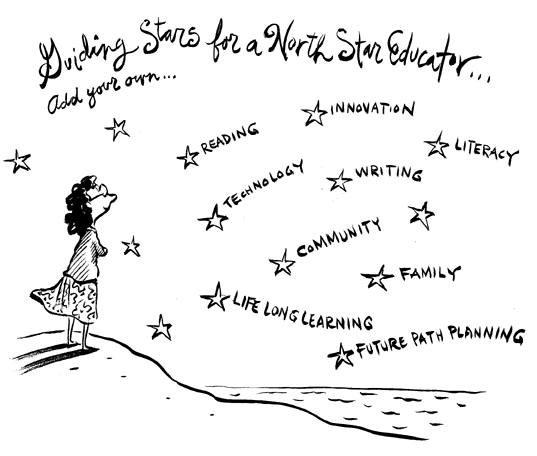 Guiding Stars for a North Star Educator...
Add your own...
INNOVATION
READING
LITERACY
TECHNOLOGY
WRITING
COMMUNITY
FAMILY
LIFE LONG LEARNING
FUTURE PATH PLANNING